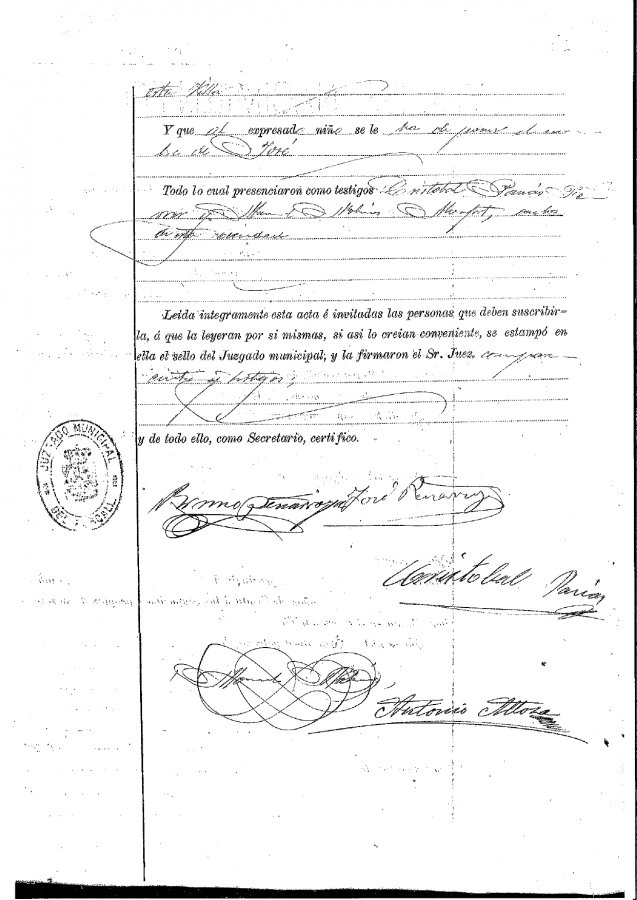 esta Villa
Y que al expresado niño se le ha de poner el nom-
bre de José
Todo lo cual presenciaron como testigos Cristobal Parías
y Manuel Molina Monfort, ambos
de esta vecindad
Leida integramente esta acta é invitadas las personas que deben suscribir-
la, á que la leyeran por si mismas, si asi lo creian conveniente, se estampó en
ella el sello del Juzgado municipal, y la firmaron el Sr. Juez, compare-
ciente y testigos,
y de todo ello, como Secretario, certifico.
JUZGADO MUNICIPAL
DEL
José
Cristobal Parías
Manuel Molina
Antonio